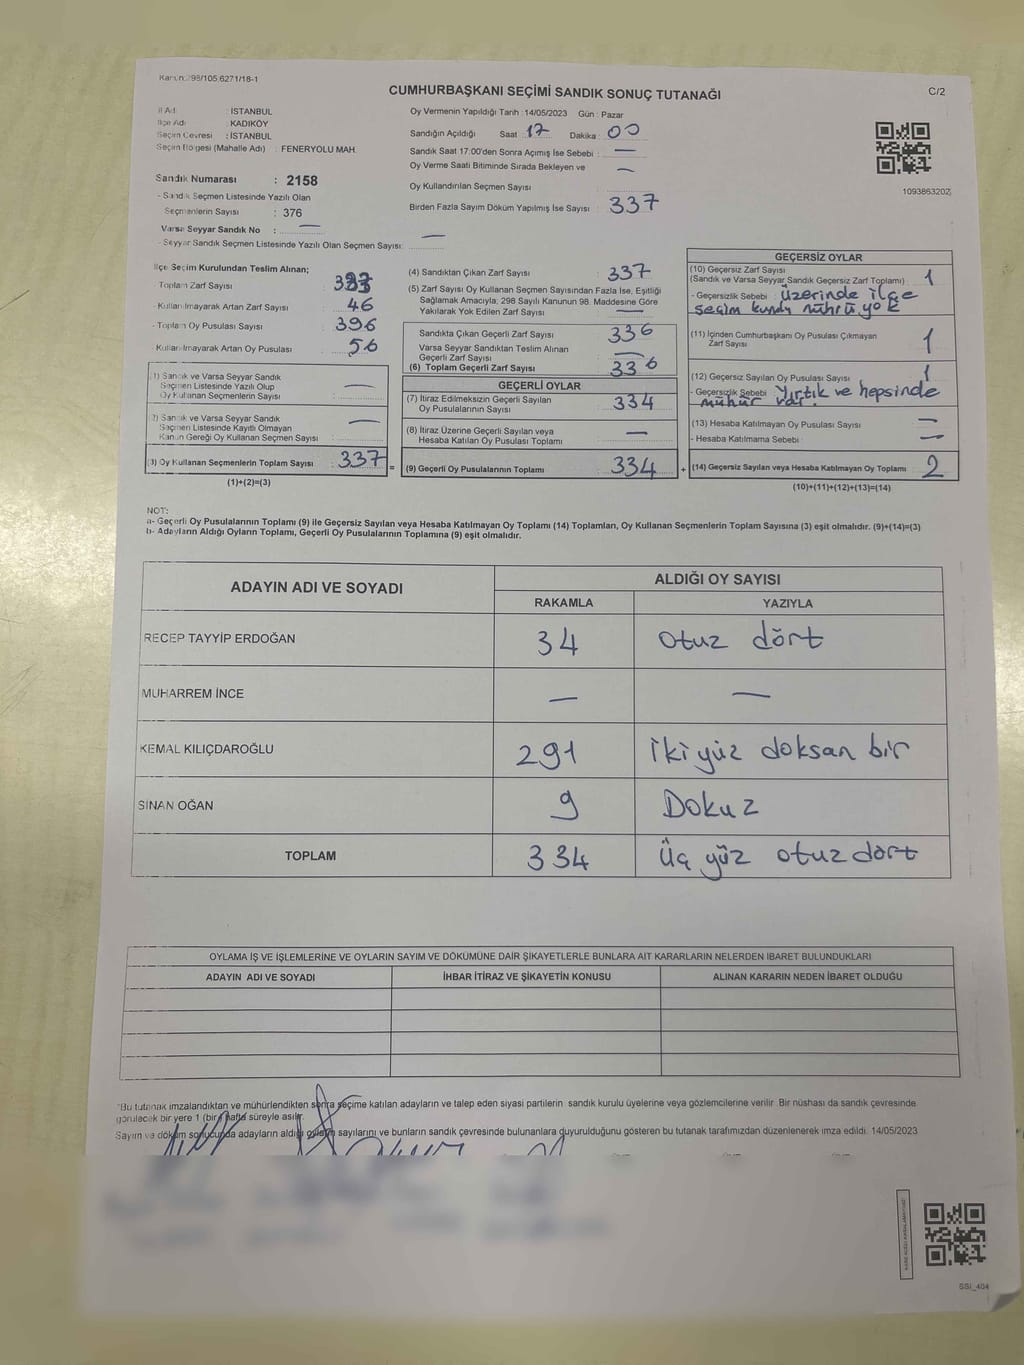 Kanun:298/105,6271/18-1
CUMHURBAŞKANI SEÇİMİ SANDIK SONUÇ TUTANAĞI
C/2
İl Adı : İSTANBUL
İlçe Adı : KADIKÖY
Seçim Çevresi : İSTANBUL
Seçim Bölgesi (Mahalle Adı) : FENERYOLU MAH.
Sandık Numarası : 2158
- Sandık Seçmen Listesinde Yazılı Olan
Seçmenlerin Sayısı : 376
Varsa Seyyar Sandık No : —
- Seyyar Sandık Seçmen Listesinde Yazılı Olan Seçmen Sayısı: —
Oy Vermenin Yapıldığı Tarih :14/05/2023 Gün : Pazar
Sandığın Açıldığı Saat : 17 Dakika : 00
Sandık Saat 17:00'den Sonra Açımış İse Sebebi : —
Oy Verme Saati Bitiminde Sırada Bekleyen ve —
Oy Kullandırılan Seçmen Sayısı
Birden Fazla Sayım Döküm Yapılmış İse Sayısı : 337
1093863202
İlçe Seçim Kurulundan Teslim Alınan;
- Toplam Zarf Sayısı
- Kullanılmayarak Artan Zarf Sayısı : 46
- Toplam Oy Pusulası Sayısı : 396
- Kullanılmayarak Artan Oy Pusulası : 56
1) Sandık ve Varsa Seyyar Sandık
Seçmen Listesinde Yazılı Olup
Oy Kullanan Seçmenlerin Sayısı : —
2) Sandık ve Varsa Seyyar Sandık
Seçmen Listesinde Kayıtlı Olmayan
Kanun Gereği Oy Kullanan Seçmen Sayısı : —
(3) Oy Kullanan Seçmenlerin Toplam Sayısı : 337
(1)+(2)=(3)
=
(4) Sandıktan Çıkan Zarf Sayısı : 337
(5) Zarf Sayısı Oy Kullanan Seçmen Sayısından Fazla İse, Eşitliği
Sağlamak Amacıyla; 298 Sayılı Kanunun 98. Maddesine Göre
Yakılarak Yok Edilen Zarf Sayısı : —
Sandıkta Çıkan Geçerli Zarf Sayısı : 336
Varsa Seyyar Sandıktan Teslim Alınan
Geçerli Zarf Sayısı : —
(6) Toplam Geçerli Zarf Sayısı : 336
GEÇERLİ OYLAR
(7) İtiraz Edilmeksizin Geçerli Sayılan
Oy Pusulalarının Sayısı : 334
(8) İtiraz Üzerine Geçerli Sayılan veya
Hesaba Katılan Oy Pusulası Toplamı : —
(9) Geçerli Oy Pusulalarının Toplamı : 334
+
GEÇERSİZ OYLAR
(10) Geçersiz Zarf Sayısı
(Sandık ve Varsa Seyyar Sandık Geçersiz Zarf Toplamı) : 1
- Geçersizlik Sebebi : üzerinde ilçe
seçim kurulu mührü yok
(11) İçinden Cumhurbaşkanı Oy Pusulası Çıkmayan
Zarf Sayısı : 1
(12) Geçersiz Sayılan Oy Pusulası Sayısı : 1
- Geçersizlik Sebebi : Yırtık ve hepsinde
mühür var.
(13) Hesaba Katılmayan Oy Pusulası Sayısı : —
- Hesaba Katılmama Sebebi : —
(14) Geçersiz Sayılan veya Hesaba Katılmayan Oy Toplamı : 2
(10)+(11)+(12)+(13)=(14)
NOT:
a- Geçerli Oy Pusulalarının Toplamı (9) ile Geçersiz Sayılan veya Hesaba Katılmayan Oy Toplamı (14) Toplamları, Oy Kullanan Seçmenlerin Toplam Sayısına (3) eşit olmalıdır. (9)+(14)=(3)
b- Adayların Aldığı Oyların Toplamı, Geçerli Oy Pusulalarının Toplamına (9) eşit olmalıdır.
ADAYIN ADI VE SOYADI
ALDIĞI OY SAYISI
RAKAMLA YAZIYLA
RECEP TAYYİP ERDOĞAN 34 otuz dört
MUHARREM İNCE — —
KEMAL KILIÇDAROĞLU 291 iki yüz doksan bir
SİNAN OĞAN 9 Dokuz
TOPLAM 334 Üç yüz otuz dört
OYLAMA İŞ VE İŞLEMLERİNE VE OYLARIN SAYIM VE DÖKÜMÜNE DAİR ŞİKAYETLERLE BUNLARA AİT KARARLARIN NELERDEN İBARET BULUNDUKLARI
ADAYIN ADI VE SOYADI İHBAR İTİRAZ VE ŞİKAYETİN KONUSU ALINAN KARARIN NEDEN İBARET OLDUĞU
*Bu tutanak imzalandıktan ve mühürlendikten sonra seçime katılan adayların ve talep eden siyasi partilerin sandık kurulu üyelerine veya gözlemcilerine verilir. Bir nüshası da sandık çevresinde
görülecek bir yere 1 (bir) hafta süreyle asılır.
Sayım ve döküm sonucunda adayların aldığı oyların sayılarını ve bunların sandık çevresinde bulunanlara duyurulduğunu gösteren bu tutanak tarafımızdan düzenlenerek imza edildi. 14/05/2023
SSİ_404